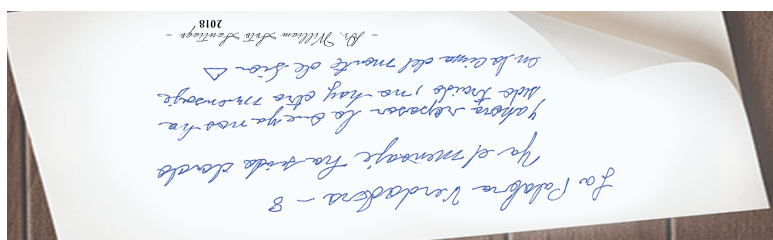 La Palabra Verdadera - 8
Ya el mensaje ha sido dado
y ahora repasar lo que ya nos ha
sido traido, no hay otro mensaje.
en la cima del monte de Sion △
- Dr. William Soto Santiago -
2018